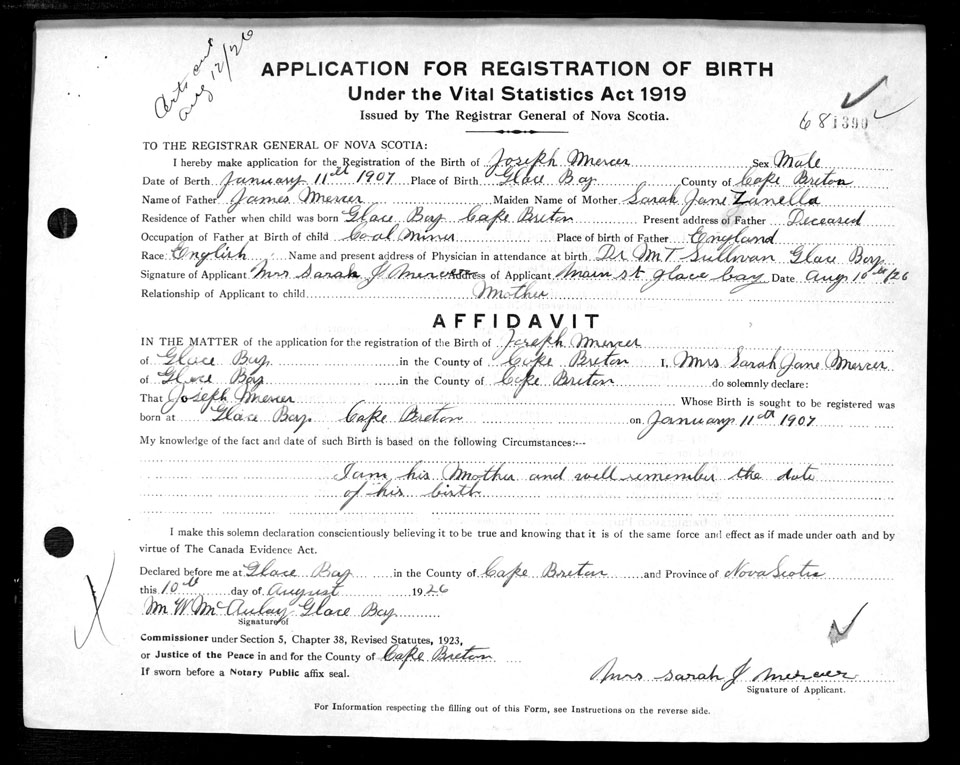 Certs out
Aug 12/26
APPLICATION FOR REGISTRATION OF BIRTH
Under the Vital Statistics Act 1919
Issued by The Registrar General of Nova Scotia.
681390
TO THE REGISTRAR GENERAL OF NOVA SCOTIA:
I hereby make application for the Registration of the Birth of Joseph Mercer Sex Male
Date of Berth January 11th 1907 Place of Birth Glace Bay County of Cape Breton
Name of Father James Mercer Maiden Name of Mother Sarah Jane Zanella
Residence of Father when child was born Glace Bay Cape Breton Present address of Father Deceared
Occupation of Father at Birth of child Coal Miner Place of birth of Father England
Race: English Name and present address of Physician in attendance at birth Dr MT Sullivan Glace Bay
Signature of Applicant Mrs Sarah J Mercer Address of Applicant Main st glace bay Date Aug 10th/26
Relationship of Applicant to child Mother
AFFIDAVIT
IN THE MATTER of the application for the registration of the Birth of Joseph Mercer
of Glace Bay in the County of Cape Breton I, Mrs Sarah Jane Mercer
of Glace Bay in the County of Cape Breton do solemnly declare:
That Joseph Mercer Whose Birth is sought to be registered was
born at Glace Bay Cape Breton on January 11th 1907
My knowledge of the fact and date of such Birth is based on the following Circumstances:--
I am his Mother and well remember the date
of his birth
I make this solemn declaration conscientiously believing it to be true and knowing that it is of the same force and effect as if made under oath and by
virtue of The Canada Evidence Act.
Declared before me at Glace Bay in the County of Cape Breton and Province of Nova Scotia
this 10th day of August 1926
M W McAulay Glace Bay
Signature of
Commissioner under Section 5, Chapter 38, Revised Statutes, 1923,
or Justice of the Peace in and for the County of Cape Breton
If sworn before a Notary Public affix seal.
Mrs Sarah J Mercer
Signature of Applicant.
For Information respecting the filling out of this Form, see Instructions on the reverse side.